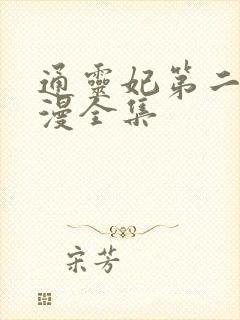 通靈妃第二
漫全集
宋芳